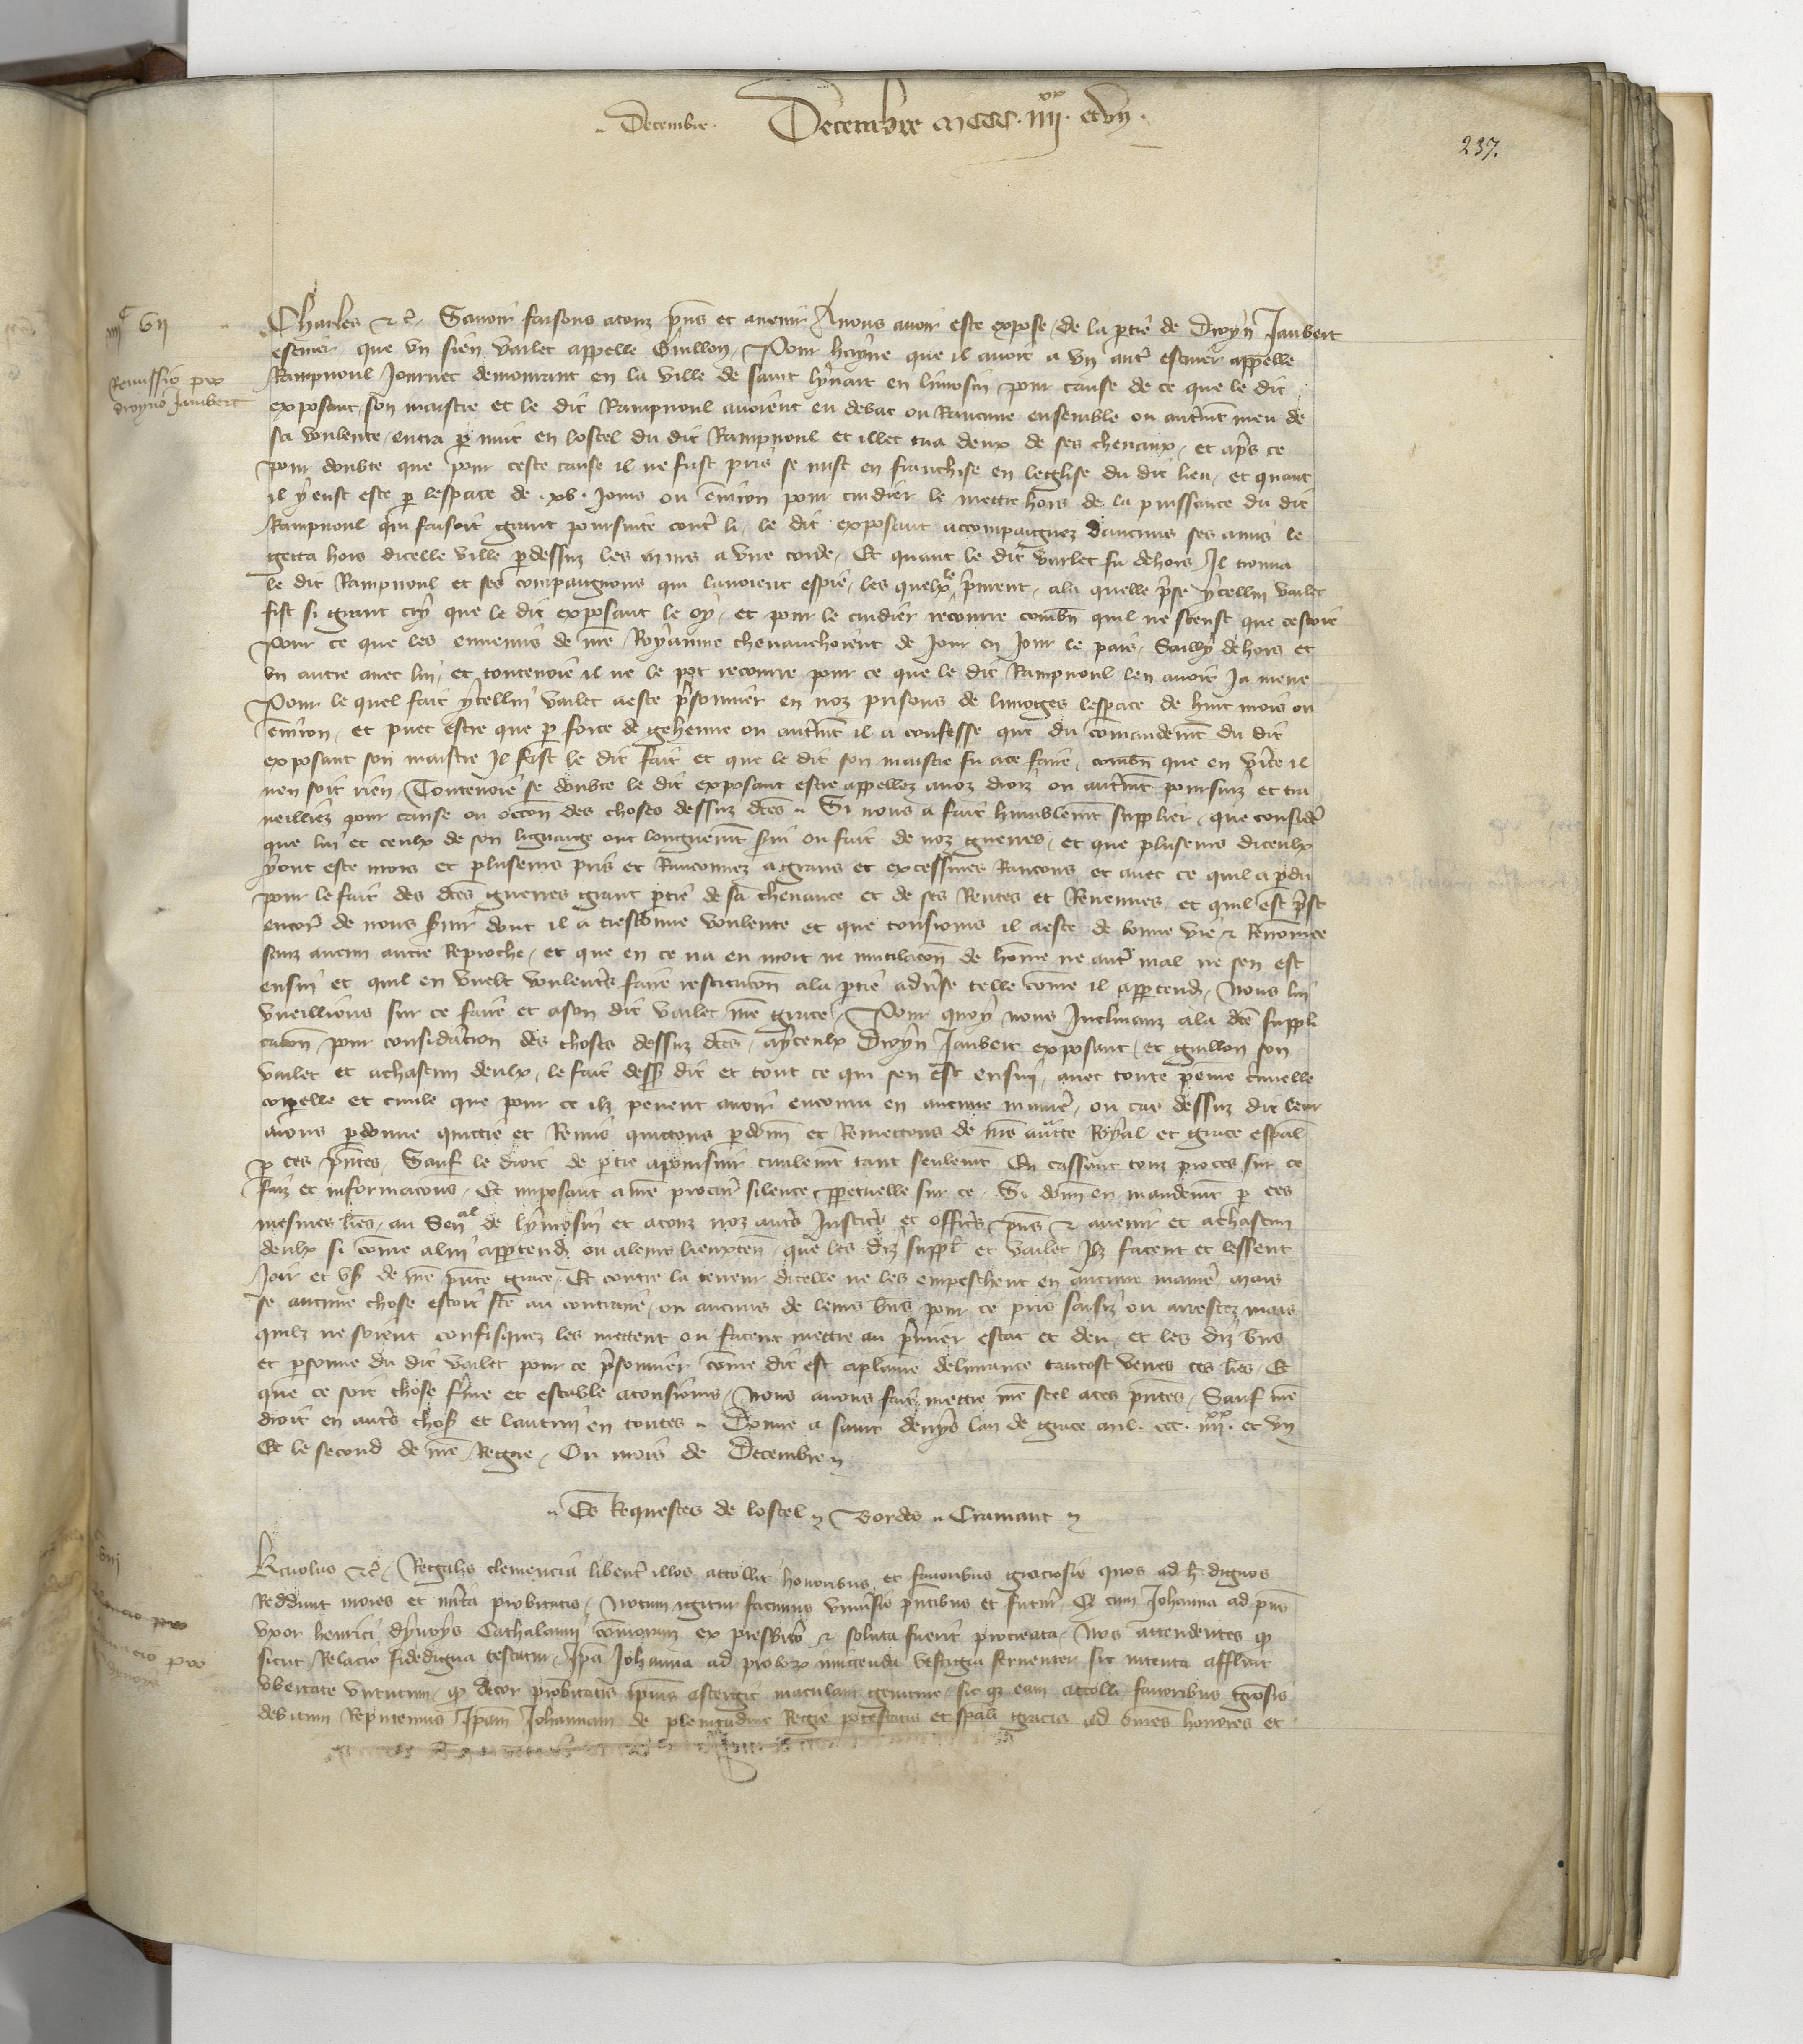 Decembre. Decembre mccc. iiii. xx et un.
237.
iiiic vii
Remissio pro
droyno Jaubert
Charles &c. Savoir faisons a touz pns et avenir A nous avoir este expose de la ptie de Droyn Jaubert
escuier que un sien varlet appelle Guillon, Pour hayne que il avoit a un autr escuier appelle
Rampnoul Journet demourant en la ville de saint lynart en limosin pour cause de ce que le dit
exposant son maistre et le dit Rampnoul avoient eu debat ou Rancune ensemble ou autrmt meu de
sa voulente, entra p nuit en lostel du dit Rampnoul et illec tua deux de ses chevaux, et aps ce
pour doubte que pour ceste cause il ne fust pris se mist en franchise en leglise du dit lieu, et quant
il y eust este p lespace de .xv. Jours ou environ pour cuidier le mettre hors de la puissance du dit
Rampnoul qui faisoit grant poursuite contr li, le dit exposant accompaignez daucuns ses amis le
getta hors dicelle ville pdessuz les murs a une corde, Et quant le dit varlet fu dehors Il trouva
le dit Rampnoul et ses compaignons qui lavoient espie, les quelx le prinrent, ala quelle prise ycellui varlet
fist si grant cry que le dit exposant le oy, et pour le cuidier recourre combn quil ne sceust que cestoit
Pour ce que les ennemis de nre Royaume chevauchoient de Jour en Jour le pais, Sailly dehors et
un autre avec lui, et toutevoie il ne le pot recourre pour ce que le dit Rampnoul len avoit Ja mene
Pour le quel fait ycellui varlet a este prisonnier en noz prisons de limoges lespace de huit mois ou
environ, et puet estre que p force de gehenne ou autrmt il a confesse que du comandemt du dit
exposant son maistre Il fist le dit fait et que le dit son maistre fu a ce faire, combn que en vrite il
nen soit rien Toutevoie se doubte le dit exposant estre appellez a noz droiz ou autrmt poursuiz et tra
veilliez pour cause ou occon des choses dessuz dces Si nous a fait humblemt supplier, que consider
que lui et ceulx de son lignaige ont longuemt suy ou fait de noz guerres, et que pluseurs diceulx
y ont este mors et pluseurs pris et Ranconnez a grans et excessives Rancons, et avec ce quil a pdu
pour le fait des dces guerres grant ptie de sa chevance et de ses Rentes et Revenues, et quil est prest
encor de nous suir dont il a tresbonne voulente et que tousiours il a este de bonne vie & Renommee
sanz aucun autre Reproche, et que en ce na eu mort ne mutilacon de homme ne autr mal ne sen est
ensui et quil en vuelt voulentrs faire restitucon ala ptie adverse telle come il apptend, Nous lui
vueillions sur ce faire et a son dit varlet nre grace, Pour quoy nous Inclinanz ala dce suppli
cacon, pour consideracion des choses dessuz dces, a yceulx Droyn Jaubert exposant, et guillon son
varlet et a chascun deulx, le fait dess dit et tout ce qui sen est ensui, avec toute peine crimelle
corpelle et civile que pour ce ilz pevent avoir encouru en aucune manier, ou cas dessuz dit leur
avons pdonne quictie et Remis quictons pdonn et Remettons de nre auttte Royal et grace espal
p ces pntes, Sauf le droit de ptie a poursuir civilemt tant seulemt En cassant touz proces sur ce
faiz et informacions, Et imposant a nre procur silence ppetuelle sur ce. Si donn en mandemt p ces
mesmes lres, au Senal de lymosin et a touz noz autrs Justicrs et officrs pns & avenir et a chascun
deulx si come a lui apptend, ou a leurs lieuxten, que les diz suppl et varlet Ilz facent et lessent
Joir et us de nre pnte grace, Et contre la teneur dicelle ne les empeschent en aucune manier mais
se aucune chose estoit fce au contraire, ou aucuns de leurs bns pour ce pris saisiz ou arrestez mais
quilz ne soient confisquez les mettent ou facent mettre au primier estat et deu, et les diz bns
et personne du dit varlet pour ce prisonnier come dit est a plaine delivrance tantost veues ces lres, Et
que ce soit chose ferme et estable a tousiours, Nous avons fait mettre nre seel a ces pntes, Sauf nre
droit en autrs chos et lautrui en toutes Donne a saint denys lan de grace mil. ccc. iiii.xx et un
Et le second de nre Regne, Ou mois de Decembre
Es Requestes de lostel Bordes Cramaut
viii
pro
Karolus &c. Regalis clemencia libentr illos attollit honoribus et favoribus graciosis quos ad h dignos
Reddunt mores et mrita probitatis, Notum igitur facimus universis pntibus et futur Q cum Johanna ad pns
uxor henrici Cathalauni comorans ex presbitero & soluta fuerit procreata, Nos attendentes qp
sicut Relacio fidedigna testatur, Ipa Johanna ad probor imitenda vestigia ferventer sic intenta affluit
ubertate virtutum, qp decor probitatis ipius abstergit maculam geniture, sic qz eam attolli favoribus grosis
debitum Reputemus Ipam Johannam de plenitudine Regie potestatis et spali gracia ad omes honores et